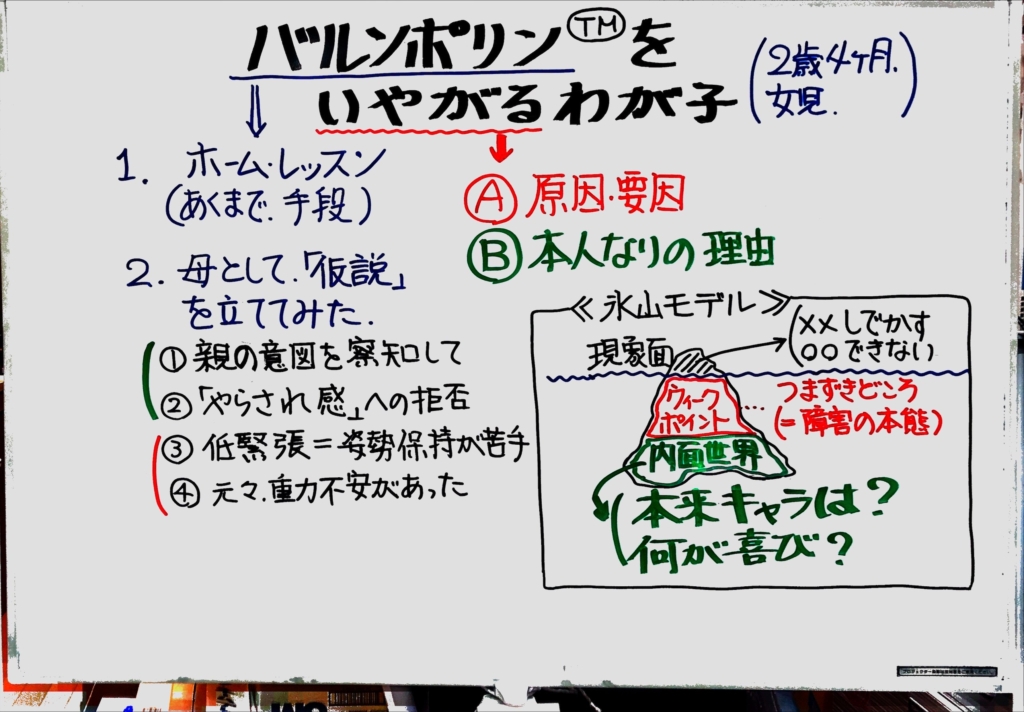 バルンポリン™を
いやがるわが子
(2歳4ヶ月.
女児.)
1. ホーム・レッスン
(あくまで、手段)
Ⓐ 原因・要因
Ⓑ 本人なりの理由
2. 母として、「仮説」
を立ててみた.
① 親の意図を察知して
② 「やらされ感」への拒否
③ 低緊張=姿勢保持が苦手
④ 元々、重力不安があった
≪氷山モデル≫
現象面
(××しでかす
○○できない
ウィーク
ポイント
つまずきどころ
(=障害の本態)
内面世界
本来キャラは?
何が喜び?